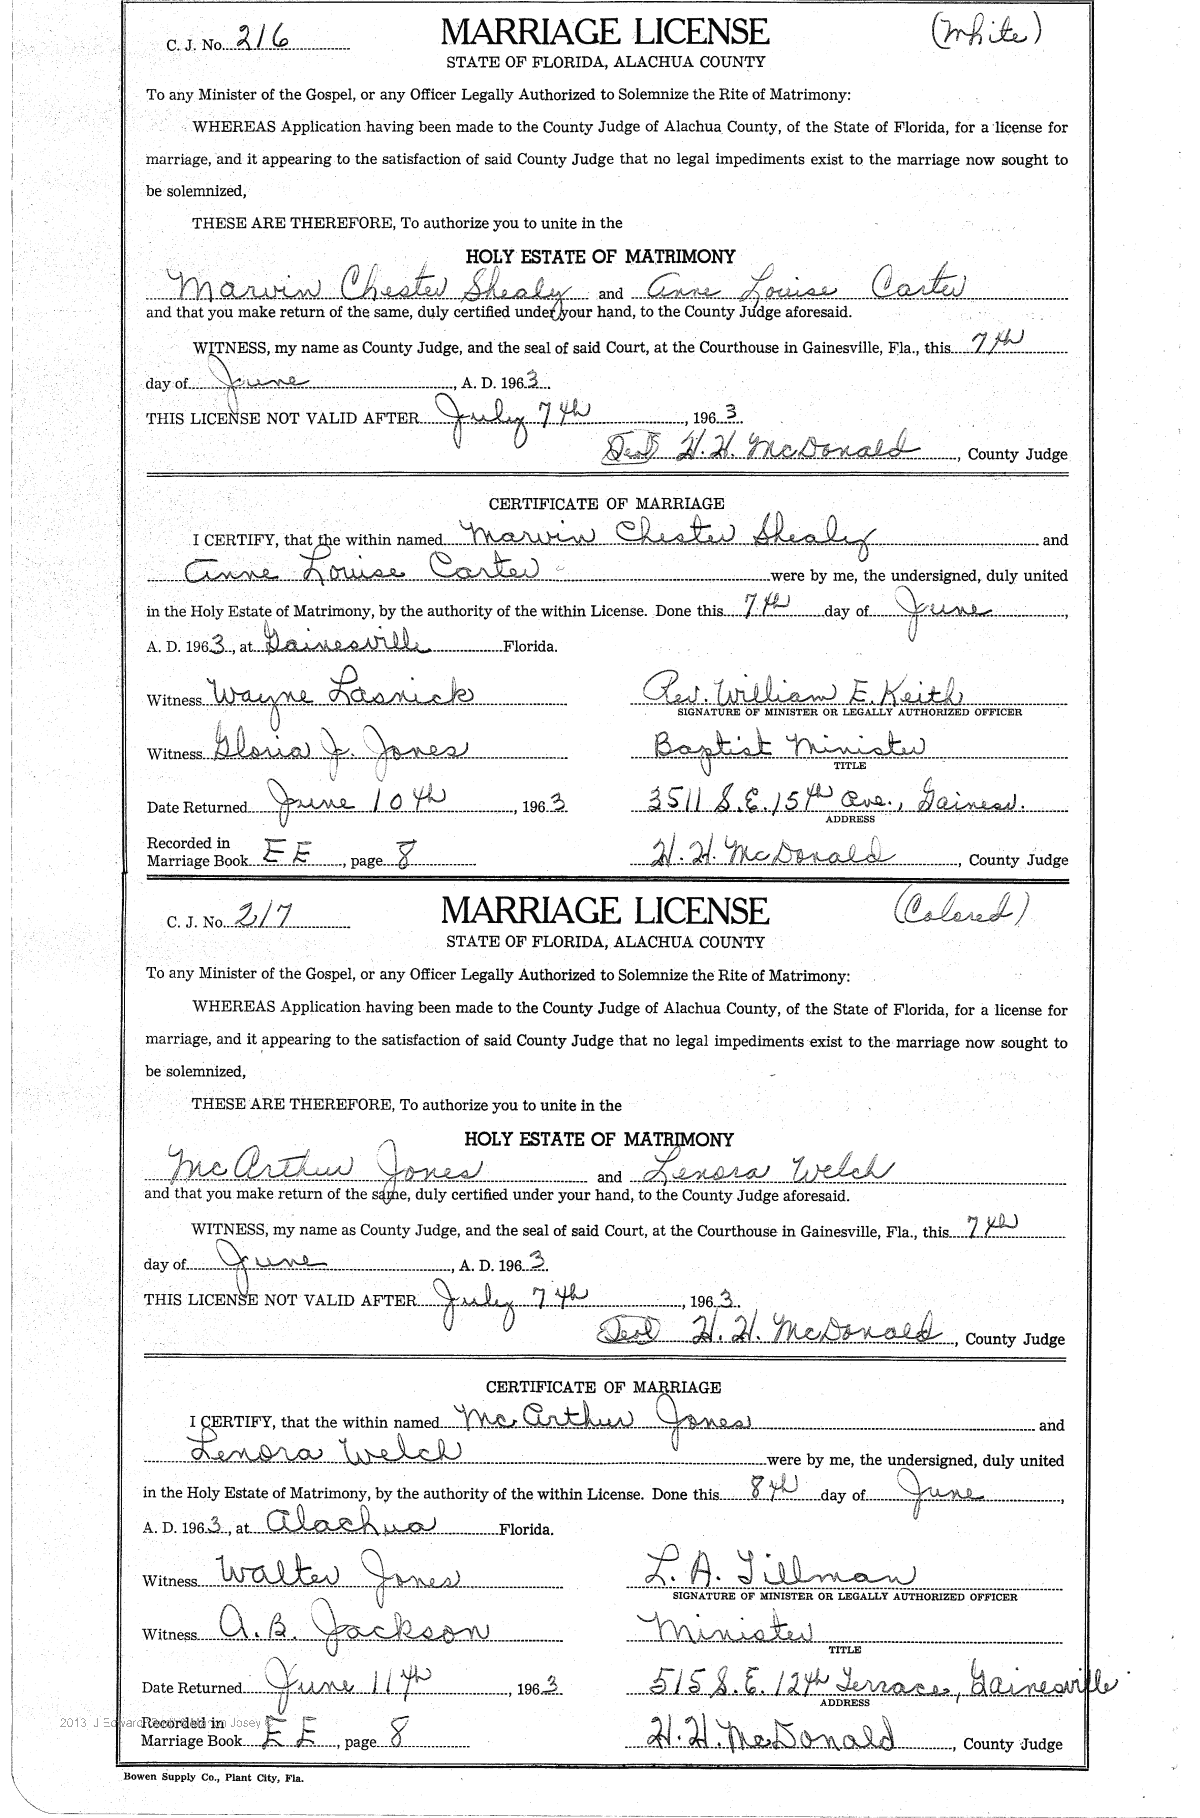 C. J. No. 216 MARRIAGE LICENSE (White)
STATE OF FLORIDA, ALACHUA COUNTY
To any Minister of the Gospel, or any Officer Legally Authorized to Solemnize the Rite of Matrimony:
WHEREAS Application having been made to the County Judge of Alachua County, of the State of Florida, for a license for
marriage, and it appearing to the satisfaction of said County Judge that no legal impediments exist to the marriage now sought to
be solemnized,
THESE ARE THEREFORE, To authorize you to unite in the
HOLY ESTATE OF MATRIMONY
Marvin Chester Shealy and Anne Louise Carter
and that you make return of the same, duly certified under your hand, to the County Judge aforesaid.
WITNESS, my name as County Judge, and the seal of said Court, at the Courthouse in Gainesville, Fla., this 7th
day of June, A. D. 1963.
THIS LICENSE NOT VALID AFTER July 7th, 1963.
Seal H. H. McDonald, County Judge
CERTIFICATE OF MARRIAGE
I CERTIFY, that the within named Marvin Chester Shealy and
Anne Louise Carter were by me, the undersigned, duly united
in the Holy Estate of Matrimony, by the authority of the within License. Done this 7th day of June,
A. D. 1963, at Gainesville Florida.
Witness Wayne Lasnick Rev. William E. Keith
SIGNATURE OF MINISTER OR LEGALLY AUTHORIZED OFFICER
Witness Gloria J. Jones Baptist Minister
TITLE
Date Returned June 10th, 1963 3511 S.E. 15th Ave., Gainesv.
ADDRESS
Recorded in
Marriage Book EE, page 8 H. H. McDonald, County Judge
C. J. No. 217 MARRIAGE LICENSE (Colored)
STATE OF FLORIDA, ALACHUA COUNTY
To any Minister of the Gospel, or any Officer Legally Authorized to Solemnize the Rite of Matrimony:
WHEREAS Application having been made to the County Judge of Alachua County, of the State of Florida, for a license for
marriage, and it appearing to the satisfaction of said County Judge that no legal impediments exist to the marriage now sought to
be solemnized,
THESE ARE THEREFORE, To authorize you to unite in the
HOLY ESTATE OF MATRIMONY
McArthur Jones and Lenora Welch
and that you make return of the same, duly certified under your hand, to the County Judge aforesaid.
WITNESS, my name as County Judge, and the seal of said Court, at the Courthouse in Gainesville, Fla., this 7th
day of June, A. D. 1963.
THIS LICENSE NOT VALID AFTER July 7th, 1963.
Seal H. H. McDonald, County Judge
CERTIFICATE OF MARRIAGE
I CERTIFY, that the within named McArthur Jones and
Lenora Welch were by me, the undersigned, duly united
in the Holy Estate of Matrimony, by the authority of the within License. Done this 8th day of June,
A. D. 1963, at Alachua Florida.
Witness Walter Jones L. A. Tillman
SIGNATURE OF MINISTER OR LEGALLY AUTHORIZED OFFICER
Witness A. B. Jackson Minister
TITLE
Date Returned June 11th, 1963 515 S.E. 12th Terrace, Gainesville
ADDRESS
2013 J Edward Josey
Recorded in
Marriage Book EE, page 8 H. H. McDonald, County Judge
Bowen Supply Co., Plant City, Fla.